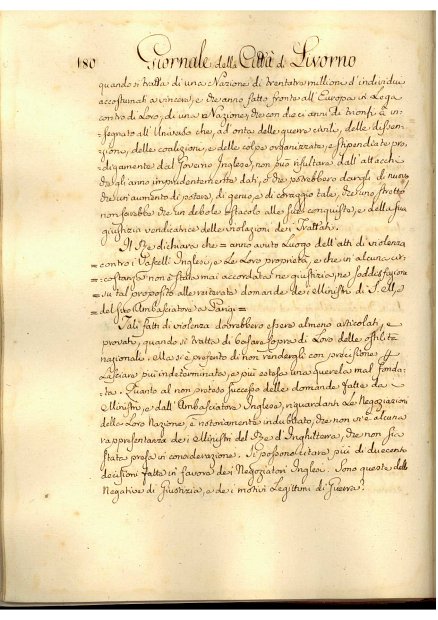 180 Giornale della Città di Livorno
quando si tratta di una Nazione di trentatre millioni d'individui
accostumati a vincere, e che anno fatto fronte all'Europa in Lega
contro di Loro, di una Nazione, che con dieci anni di trionfi à in-
segnato all'Universo che, ad onta delle guerre civili, delle dissen-
zioni, delle coalizioni, e delle colpe organizzate, e stipendiate pro-
digamente dal Governo Inglese, non può risultare dall'attacchi
che gli anno imprudentemente dati, o che potrebbero dargli di nuovo
che un aumento di potere, di genio, e di coraggio tale, che uno stretto
non sarebbe che un debole ostacolo alle sue conquiste, e della sua
giustizia vendicatrice delle violazioni dei Trattati.
Il Re dichiara che = anno avuto Luogo dell'atti di violenza
= contro i Vascelli Inglesi, e Le Loro proprietà, e che in alcuna cir-
= costanza non è stata mai accordata ne giustizia, ne soddisfazione
= su tal proposito alle reiterate domande dei Ministri di S. M., e
= del suo Ambasciatore a Parigi =
Tali fatti di violenza dovrebbero essere almeno articolati, e
provati, quando si tratta di basare sopra di Loro delle ostilità
nazionali. Ma si è preferito di non renderli con precisione p
Lasciare più indeterminata, e più estesa una querela mal fonda-
ta. Quanto al non preteso successo delle domande fatte da
Ministri, e dall'Ambasciatore Inglese, riguardanti Le Negoziazioni
della Loro Nazione, è notoriamente indubitato, che non vi è alcuna
rappresentanza dei Ministri del Re d'Inghilterra, che non sia
stata presa in considerazione. Si possono citare più di duecento
decisioni fatte in favore dei Negoziatori Inglesi. Sono queste delle
Negative di Giustizia, e dei motivi Legittimi di Guerra?